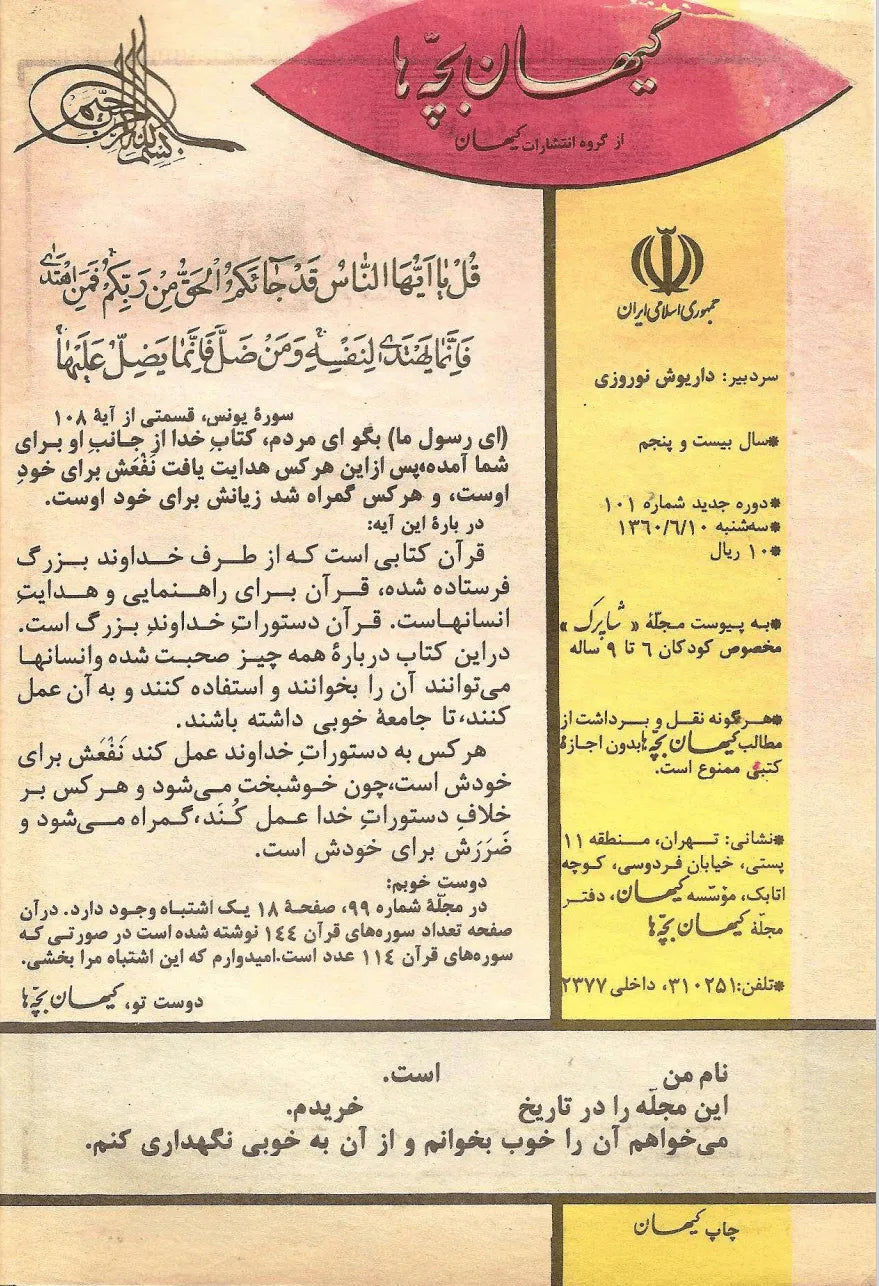 کیهان بچّه ها
از گروه انتشارات کیهان
بسم الله الرحمن الرحیم
قُلْ یا اَیُّهَا النّاسُ قَدْ جائَکُمُ الْحَقُّ مِنْ رَبِّکُمْ فَمَنِ اهْتَدی
فَاِنَّما یَهْتَدی لِنَفْسِهِ وَمَنْ ضَلَّ فَاِنَّما یَضِلُّ عَلَیْها
سورهٔ یونس، قسمتی از آیهٔ ۱۰۸
(ای رسول ما) بگو ای مردم، کتابِ خدا از جانبِ او برای
شما آمده،پس ازاین هرکس هدایت یافت نَفْعَش برای خودِ
اوست، و هرکس گمراه شد زیانش برای خود اوست.
در بارهٔ این آیه:
قرآن کتابی است که از طرف خداوند بزرگ
فرستاده شده، قرآن برای راهنمایی و هدایتِ
انسانهاست. قرآن دستوراتِ خداوندِ بزرگ است.
دراین کتاب دربارهٔ همه چیز صحبت شده وانسانها
می‌توانند آن را بخوانند و استفاده کنند و به آن عمل
کنند، تا جامعهٔ خوبی داشته باشند.
هرکس به دستوراتِ خداوند عمل کند نَفْعَش برای
خودش است،چون خوشبخت می‌شود و هرکس بر
خلافِ دستوراتِ خدا عمل کُنَد،گمراه می‌شود و
ضَرَرَش برای خودش است.
دوست خوبم:
در مجلّهٔ شماره ۹۹، صفحهٔ ۱۸ یک اشتباه وجود دارد. درآن
صفحه تعداد سوره‌های قرآن ۱۴۴ نوشته شده است در صورتی که
سوره‌های قرآن ۱۱۴ عدد است.امیدوارم که این اشتباه مرا ببخشی.
دوست تو، کیهان بچّه ها
جمهوری اسلامی ایران
سردبیر: داریوش نوروزی
*سال بیست و پنجم
*دوره جدید شماره ۱۰۱
*سه‌شنبه ۱۳۶۰/۶/۱۰
*۱۰ ریال
*به پیوست مجلّهٔ «شاپرک»
مخصوص کودکان ۶ تا ۹ ساله
*هرگونه نقل و برداشت از
مطالب کیهان بچّه ها بدون اجازهٔ
کتبی ممنوع است.
*نشانی: تهران، منطقه ۱۱
پستی، خیابان فردوسی، کوچه
اتابک، مؤسّسه کیهان، دفتر
مجلّهٔ کیهان بچّه ها
*تلفن:۳۱۰۲۵۱، داخلی ۲۳۷۷
نام من است.
این مجلّه را در تاریخ خریدم.
می‌خواهم آن را خوب بخوانم و از آن به خوبی نگهداری کنم.
چاپ کیهان